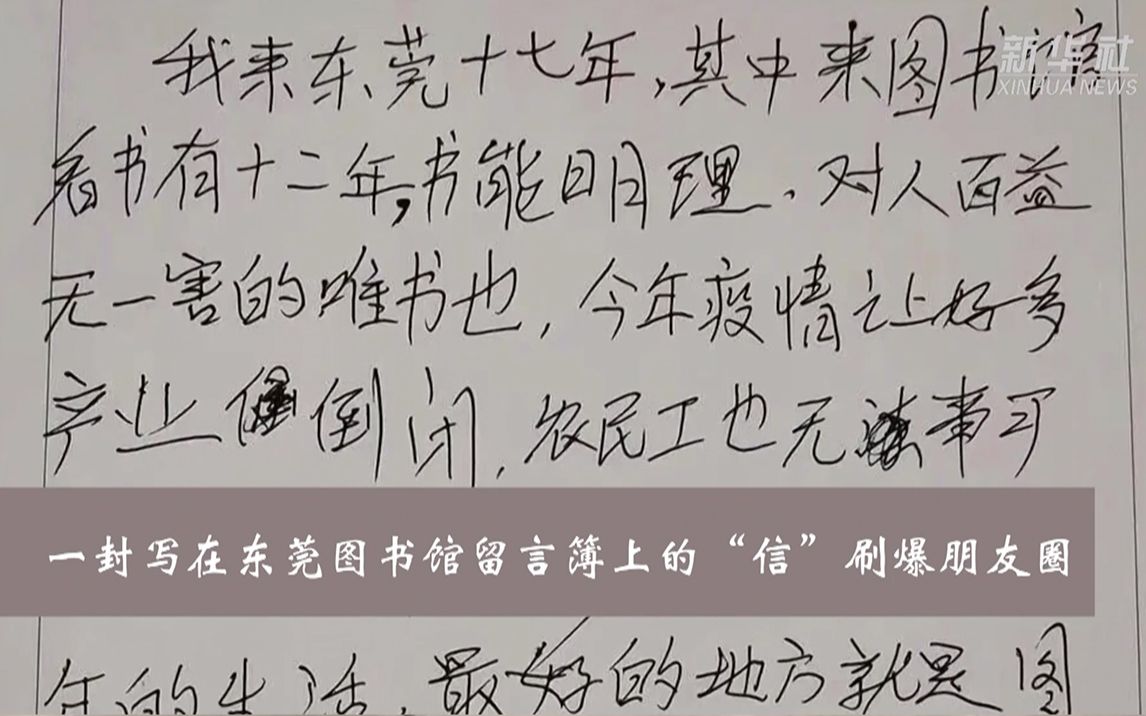 新华社
XINHUA NEWS
我来东莞十七年,其中来图书馆
看书有十二年,书能明理、对人百益
无一害的唯书也,今年疫情让好多
产业倒闭,农民工也无事可
一封写在东莞图书馆留言簿上的“信”刷爆朋友圈
年的生活,最好的地方就是图